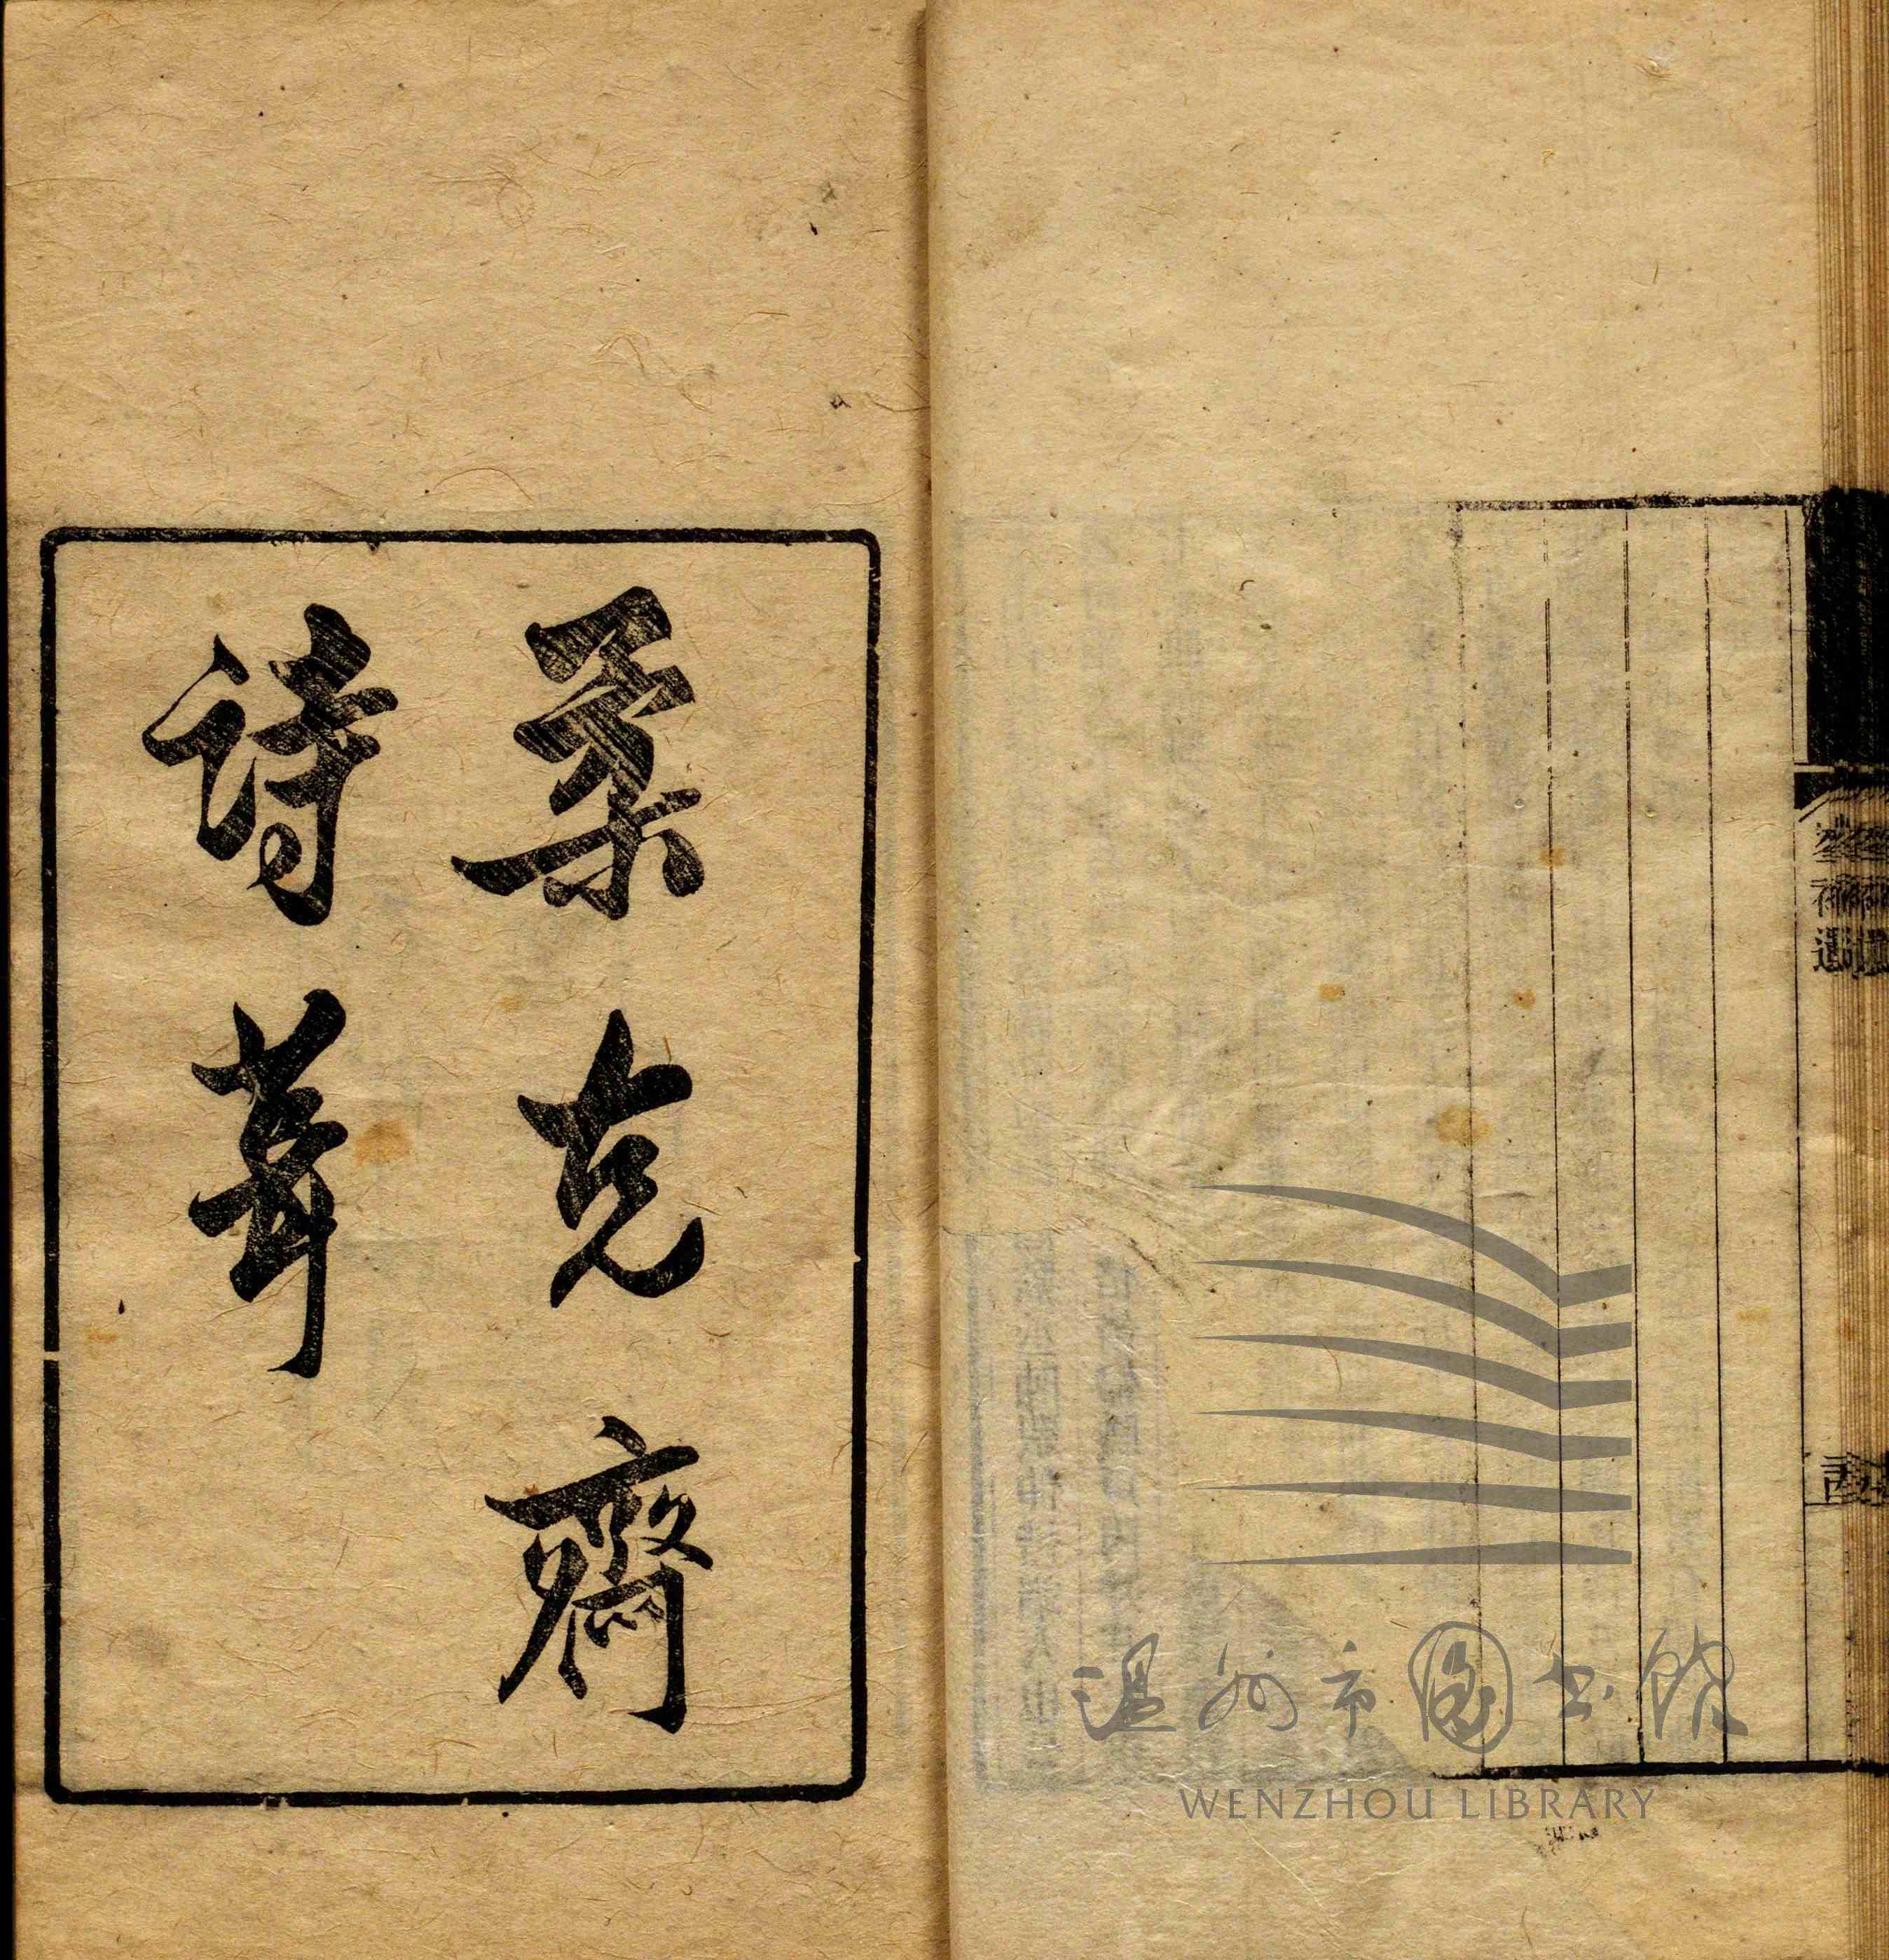 柔克齋
詩葺
温州市图书馆
WENZHOU LIBRARY